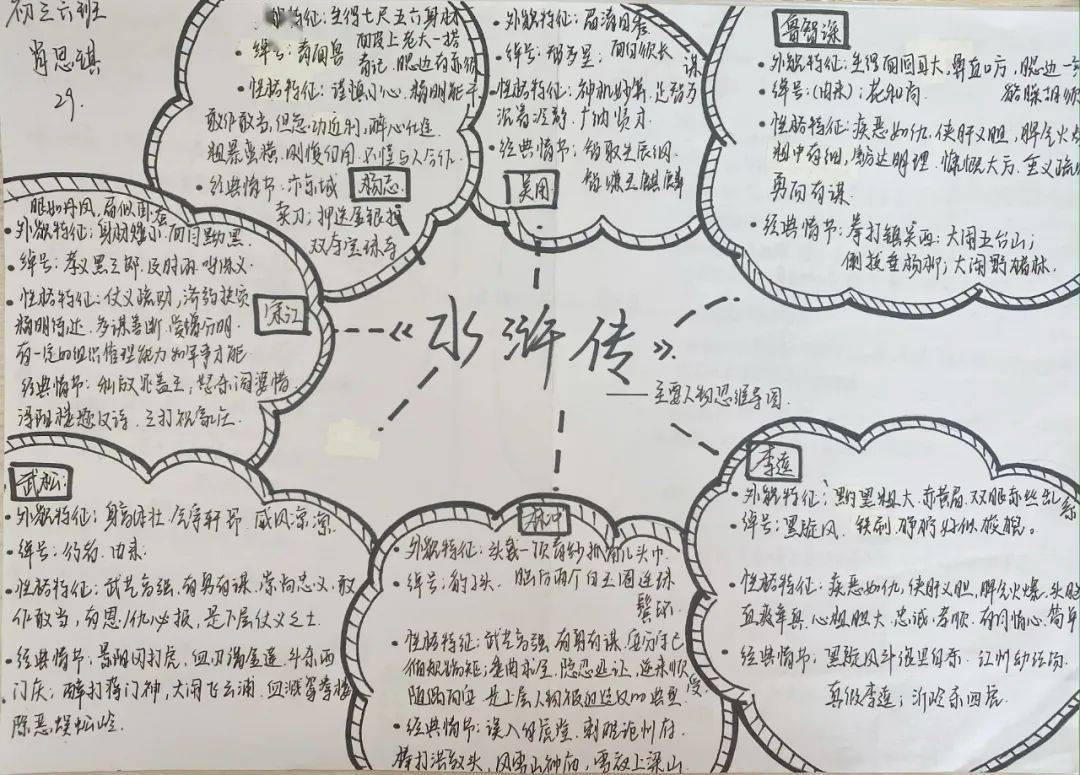 初三六班
肖思琪
29.
外貌特征：生得七尺五六身材
面皮上老大一搭
绰号：青面兽
青记，腮边有赤须
性格特征：谨慎小心，精明能干
敢作敢当，但急功近利，醉心仕途
粗暴蛮横，刚愎自用，不懂与人合作
经典情节：汴京城
杨志
卖刀；押送金银担
双夺宝珠寺
外貌特征：眉清目秀
绰号：智多星；面白须长
性格特征：神机妙算，足智多谋
沉着冷静，广纳贤才
经典情节：智取生辰纲
吴用
智赚玉麒麟
鲁智深
外貌特征：生得面圆耳大，鼻直口方，腮边一
绰号：(由来)：花和尚
性格特征：疾恶如仇，侠肝义胆，脾气火
粗中有细，豁达明理，慷慨大方，仗义疏
勇而有谋
经典情节：拳打镇关西；大闹五台山；
倒拔垂杨柳；大闹野猪林.
眼如丹凤，眉似卧蚕
外貌特征：身材矮小 面目黝黑
绰号：孝义黑三郎 及时雨 呼保义
性格特征：仗义疏财，济弱扶贫
宋江
精明练达，多谋善断，赏罚分明
有一定的组织管理能力和军事才能
经典情节：私放晁盖；怒杀阎婆惜
浔阳楼题反诗，三打祝家庄
《水浒传》
——主要人物思维导图
武松
外貌特征：身高体壮，气宇轩昂，威风凛凛
绰号：行者 由来
性格特征：武艺高强，有勇有谋，崇尚忠义，敢
作敢当，有恩/仇必报，是下层侠义之士
经典情节：景阳冈打虎，血刃潘金莲，斗杀西
门庆；醉打蒋门神，大闹飞云浦，血溅鸳鸯楼
除恶蜈蚣岭
林冲
外貌特征：头戴一顶青纱抓角儿头巾
绰号：豹子头，脑后两个白玉圈连珠
鬓环
性格特征：武艺高强，有勇有谋，安分守己
循规蹈矩；委曲求全，隐忍退让，逆来顺受
随遇而安 是上层人物被逼造反的典型
经典情节：误入白虎堂，刺配沧州府
棒打洪教头，风雪山神庙，雪夜上梁山
李逵
外貌特征：黝黑粗大，赤黄眉，双眼赤丝乱系
绰号：黑旋风
性格特征：疾恶如仇，侠肝义胆，脾气火爆，头脑
直爽率真，心粗胆大，忠诚，孝顺，有同情心，简单
经典情节：黑旋风斗浪里白条，江州劫法场
真假李逵；沂岭杀四虎